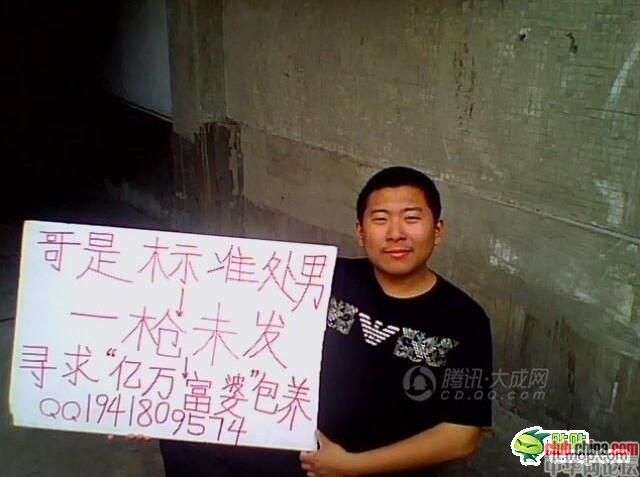 哥是标准处男
一枪未发
寻求“亿万富婆”包养
QQ1941809574
腾讯·大成网
CD.QQ.COM
club.china.com